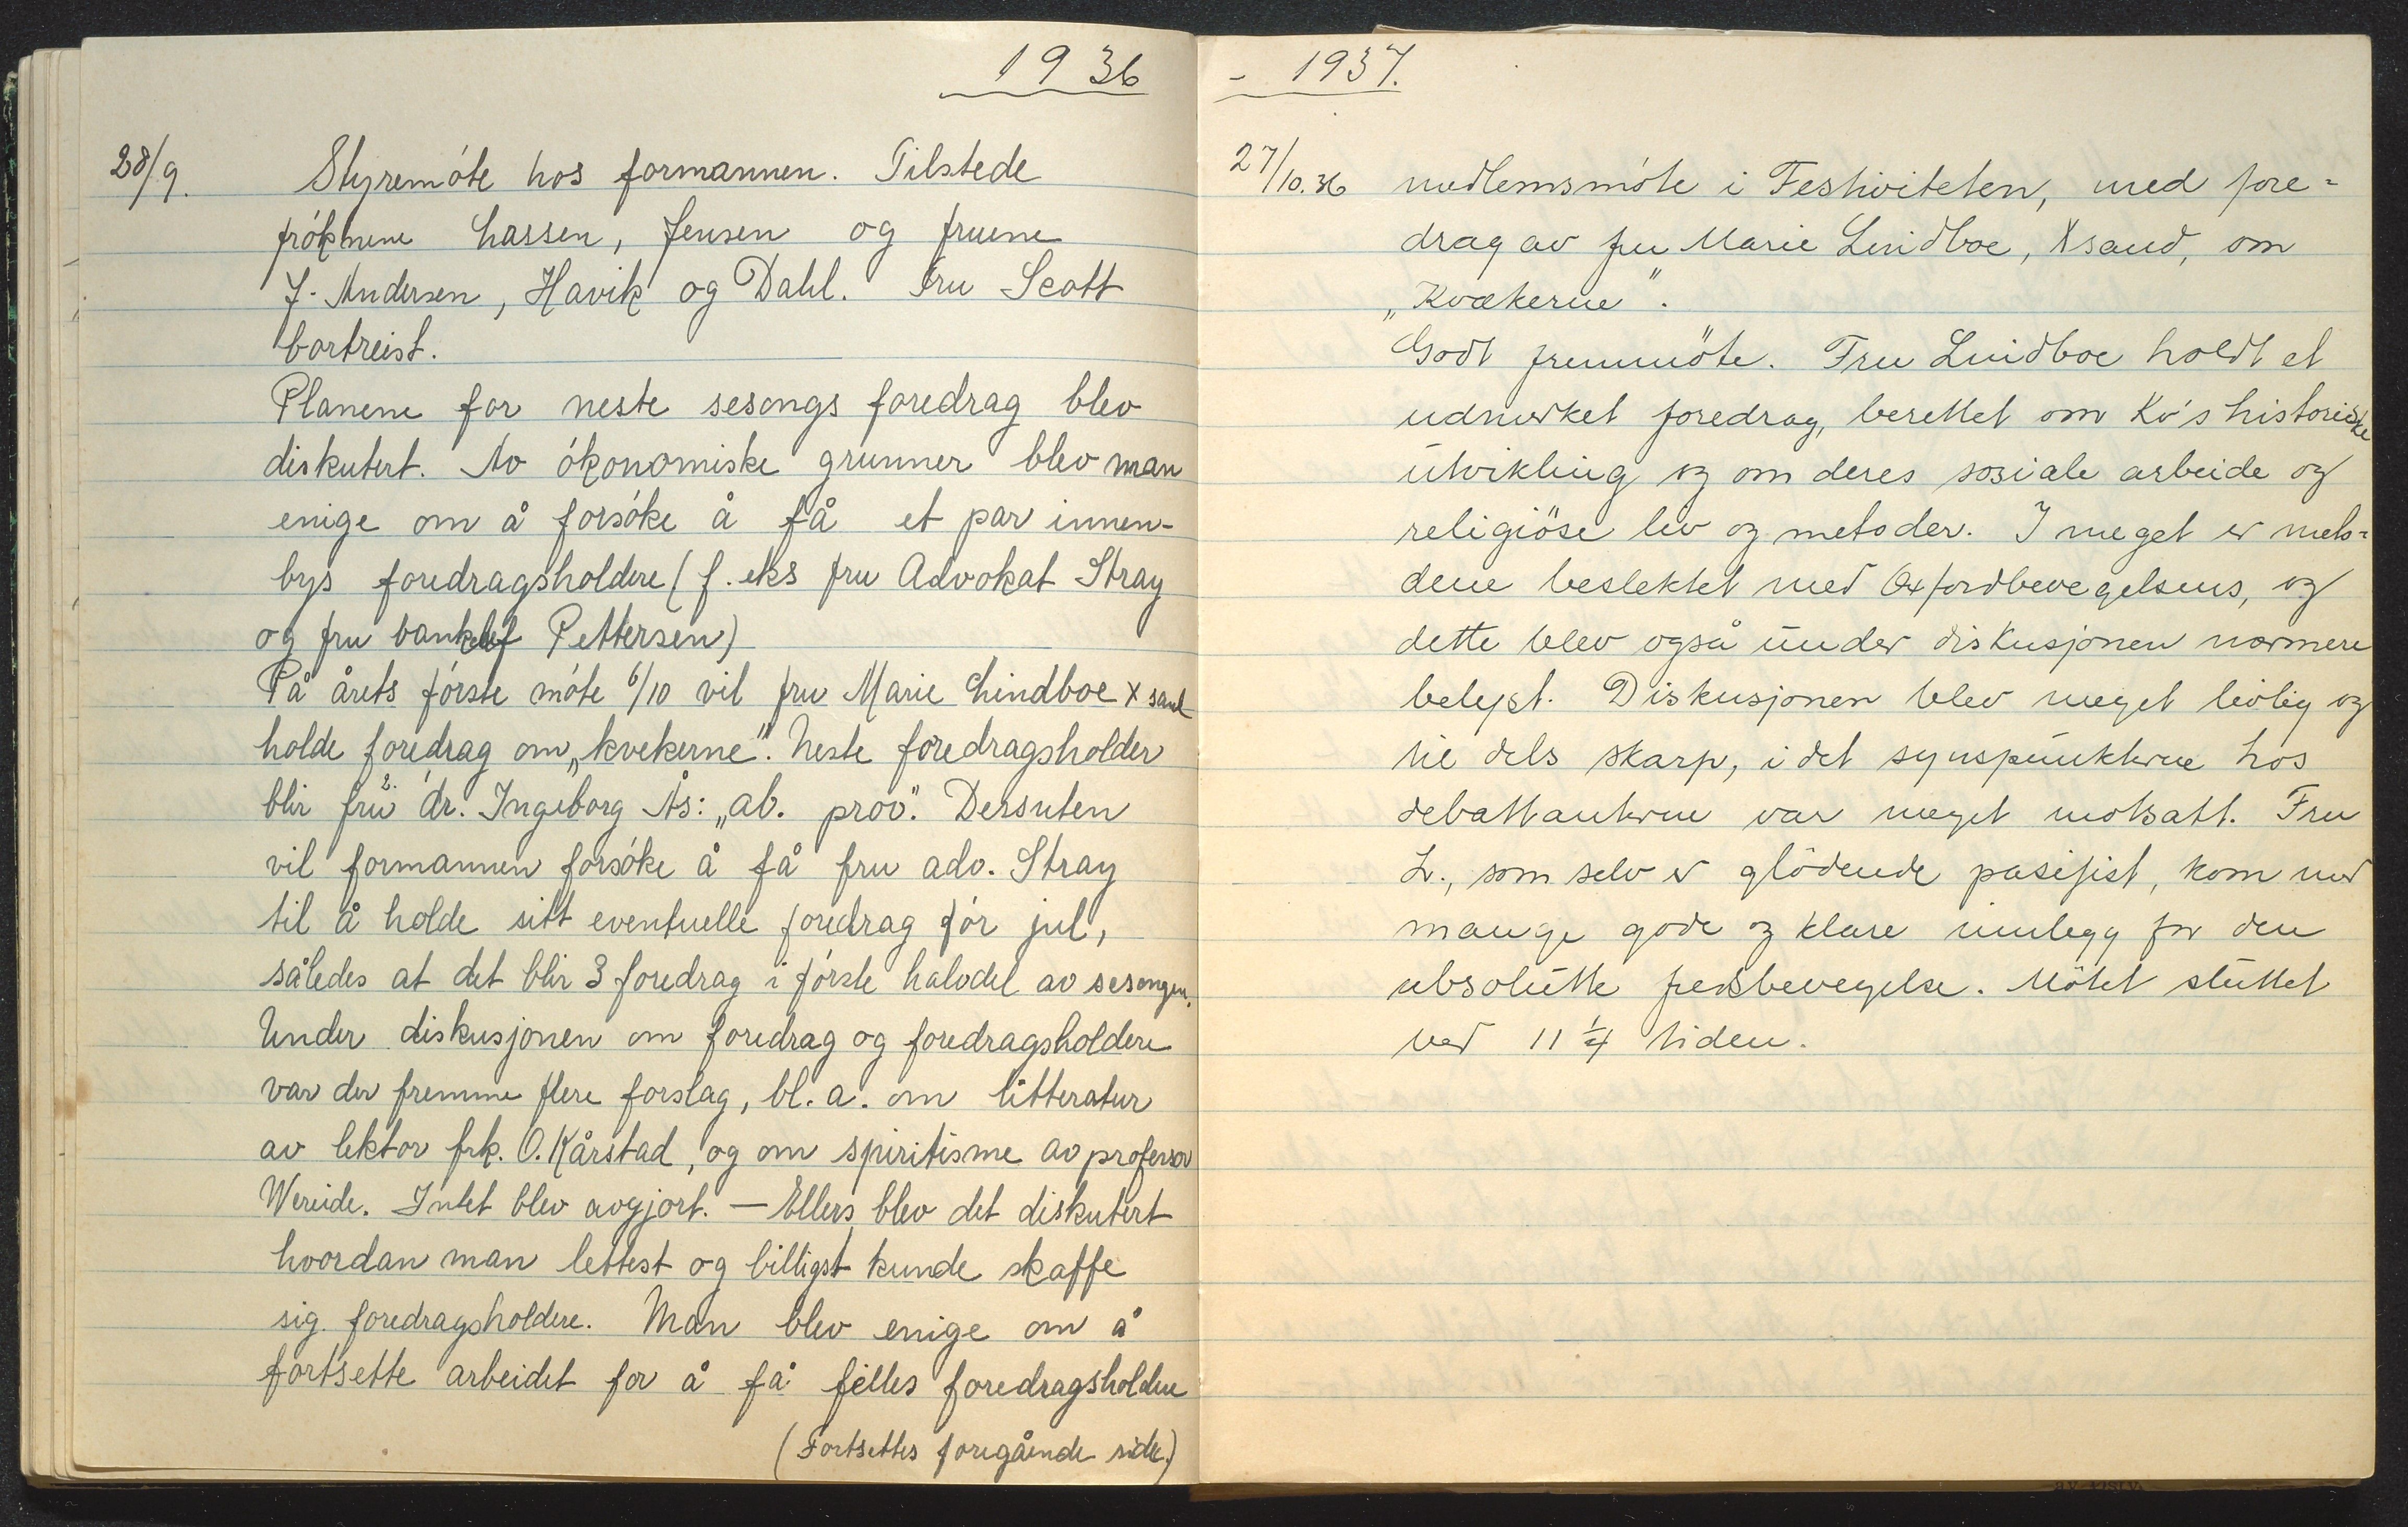 1936
28/9. Styremöte hos formannen. Tilstede
fröknene Lassen, Jensen og fruene
J. Andersen, Havik og Dahl. Fru Scott
bortreist.
Planene for neste sesongs foredrag blev
diskutert. Av ökonomiske grunner blev man
enige om å forsöke å få et par innen-
bys foredragsholdere (f. eks fru Advokat Stray
og fru Pettersen)
På årets förste möte 6/10 vil fru Marie Lindboe X sand
holde foredrag om „kvekerne". Neste foredragsholder
blir fru dr. Ingeborg Ås: „ab. prov". Dersuten
vil formannen forsöke å få fru adv. Stray
til å holde sitt eventuelle foredrag för jul,
således at det blir 3 foredrag i förste halvdel av sesongen.
Under diskusjonen om foredrag og foredragsholdere
var der fremme flere forslag, bl. a. om litteratur
av lektor frk. O. Kårstad, og om spiritisme av professor
Wereide. Intet blev avgjort. — Ellers blev det diskutert
hvordan man lettest og billigst kunde skaffe
sig foredragsholdere. Man blev enige om å
fortsette arbeidet for å få felles foredragsholdere
(Fortsettes foregående side.)
- 1937.
27/10.36 medlemsmöte i Festiviteten, med fore=
drag av fru Marie Lindboe, Xsand, om
„Kvækerne".
Godt fremmöte. Fru Lindboe holdt et
udmerket foredrag, berettet om Kv's historiske
utvikling og om deres sosiale arbeide og
religiöse liv og metoder. I meget er meto=
dene beslektet med Oxfordbevegelsens, og
dette blev også under diskusjonen nærmere
belyst. Diskusjonen blev meget livlig og
til dels skarp, i det synspunkterne hos
debattanterne var meget motsatt. Fru
L., som selv er glödende pasifist, kom med
mange gode og klare innlegg for den
absolutte fredsbevegelse. Mötet sluttet
ved 11 1/4 tiden.